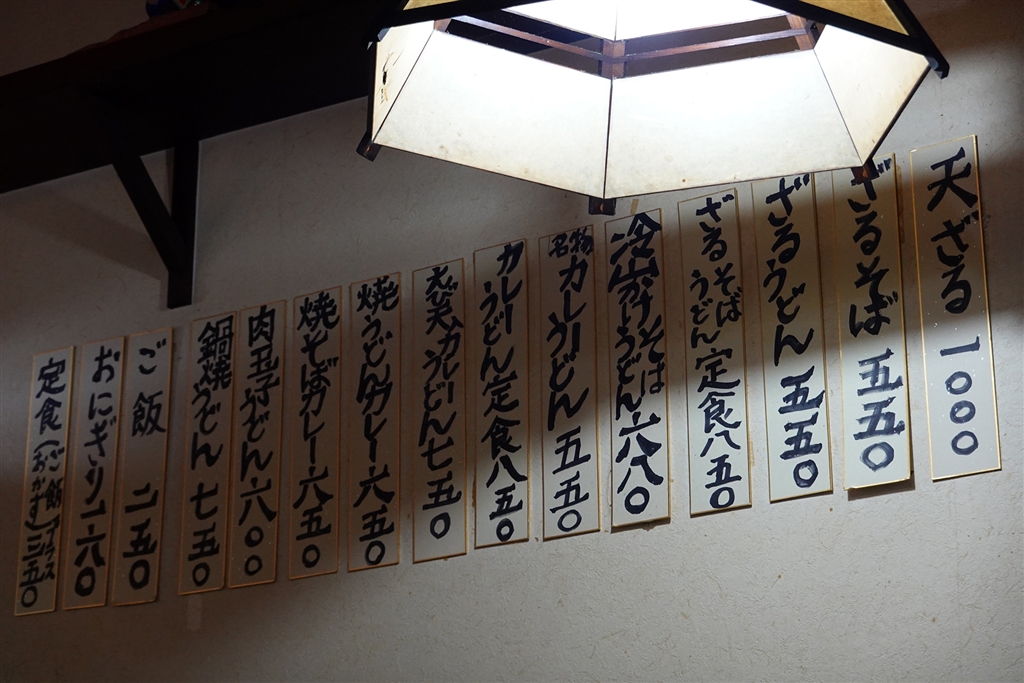 天ざる 1000
ざるそば 五五〇
ざるうどん 五五〇
ざるそば
うどん 定食 八五〇
冷山かけそば
うどん 六八〇
名物
カレーうどん 五五〇
カレー
うどん定食 八五〇
えび天カレー
うどん 七五〇
焼うどんカレー 六五〇
焼そばカレー 六五〇
肉玉子うどん 六〇〇
鍋焼うどん 七五〇
ご飯 二五〇
おにぎり 一六〇
定食(ご飯プラス
おかず)三五〇